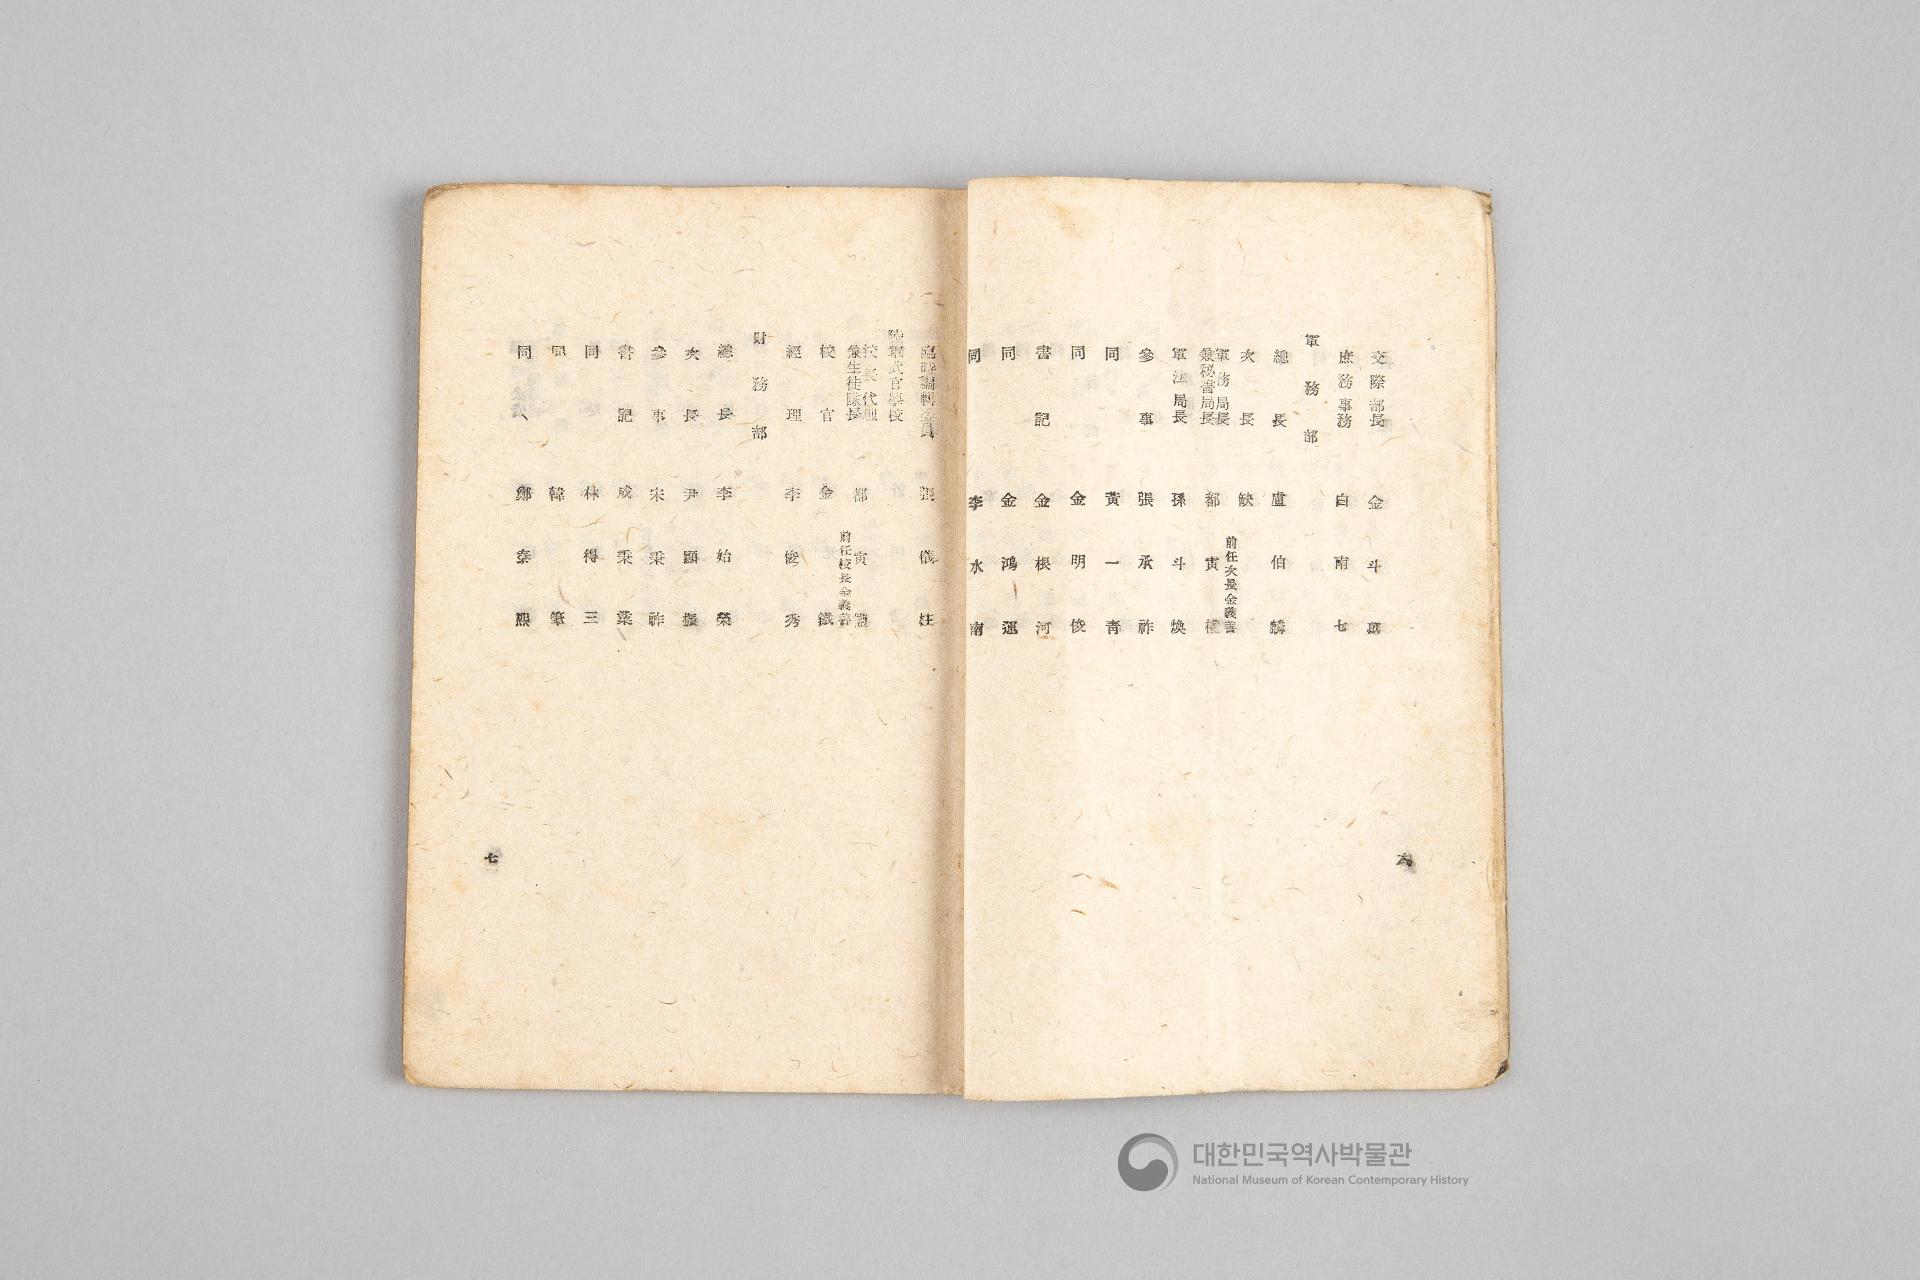 交際部長 金斗萬
庶務事務 白南七
軍務部
總長 盧伯麟
次長 缺 前任次長金義善
軍務局長
兼秘書局長 都寅權
軍法局長 孫斗煥
參事 張承祚
同 黃一靑
同 金明俊
書記 金根河
同 金鴻運
同 李水南
六
臨時編輯委員 張儀柱
陸軍武官學校
校長代理
兼生徒隊長 都寅權 前任校長金義善
校官 金鐵
經理 李俊秀
財務部
總長 李始榮
次長 尹顯振
參事 宋秉祚
書記 成秉業
同 林得三
同 韓筆
同 鄭泰熙
七
대한민국역사박물관
National Museum of Korean Contemporary History